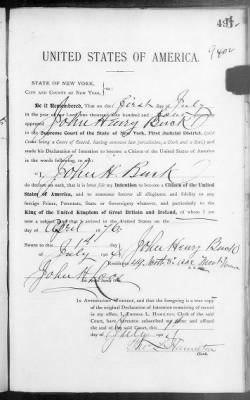 491
9402
UNITED STATES OF AMERICA.
STATE OF NEW YORK,
CITY AND COUNTY OF NEW YORK,
Be it Remembered, That on the first day of July
in the year of our Lord one thousand nine hundred and
appeared John Henry Buck
in the Supreme Court of the State of New York, First Judicial District, (said
Court being a Court of Record, having common law jurisdiction, a Clerk and a Seal,) and
made his Declaration of Intention to become a Citizen of the United States of America
in the words following, to wit:
"I, John H. Buck
do declare on oath, that it is bona fide my Intention to become a Citizen of the United
States of America, and to renounce forever all allegiance and fidelity to any
foreign Prince, Potentate, State or Sovereignty whatever, and particularly to the
King of the United Kingdom of Great Britain and Ireland, of whom I am
now a subject; that I arrived in the United States on the
day of April
Sworn to this 1st
day of July John Henry Buck
Residence
IN ATTESTATION WHEREOF, and that the foregoing is a true copy
of the original Declaration of Intention remaining of record
in my office, I, THOMAS L. HAMILTON, Clerk of the said
Court, have hereunto subscribed my name and affixed
the seal of the said Court, this 1st
day of July
Thos. L. Hamilton
Clerk.